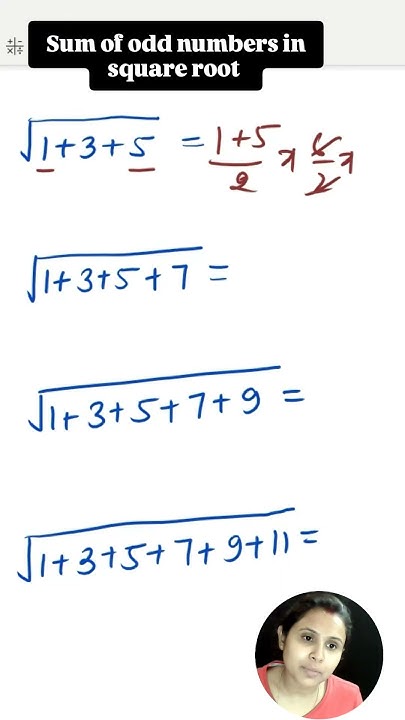 Sum of odd numbers in
square root
√1+3+5 = 1+5/2 x 6/2 x
√1+3+5+7 =
√1+3+5+7+9 =
√1+3+5+7+9+11 =